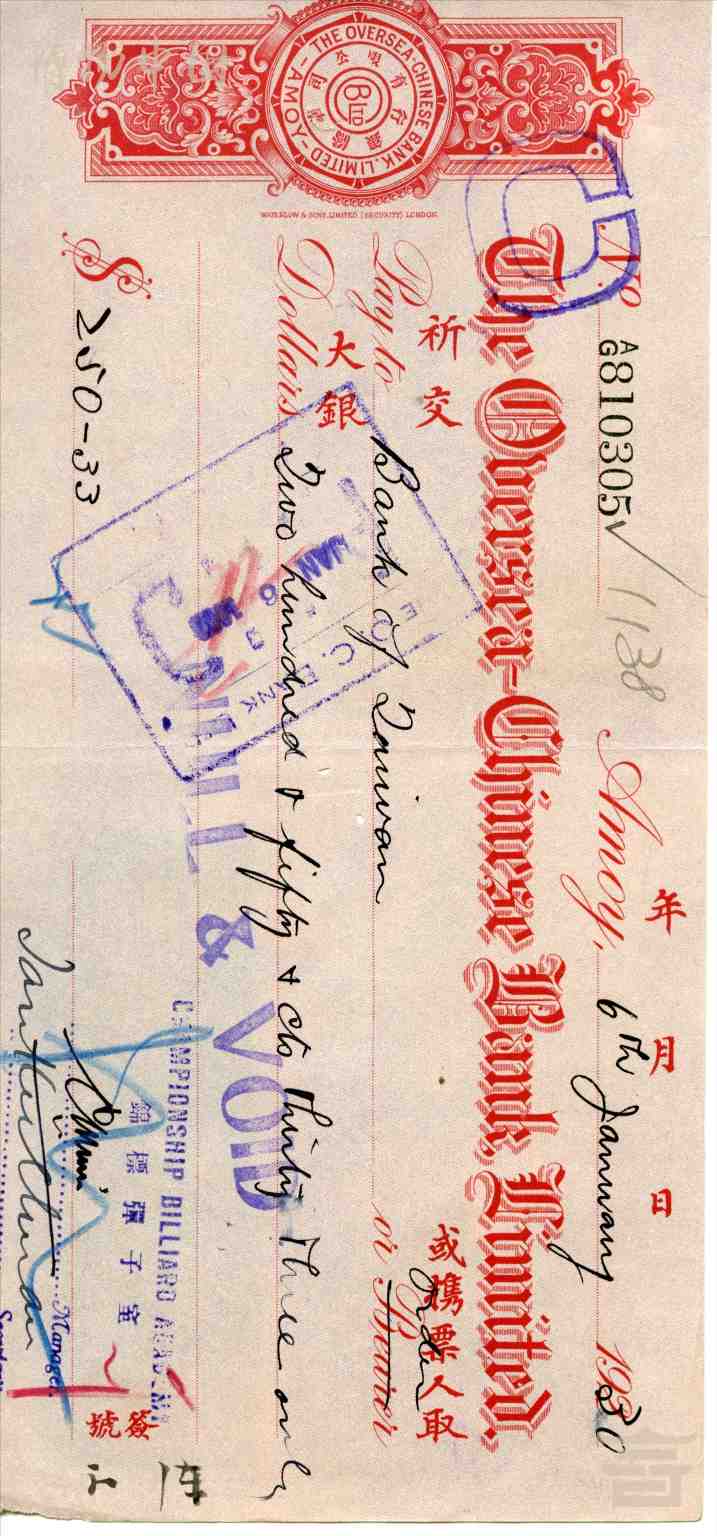 THE OVERSEA-CHINESE BANK, LIMITED
-AMOY-
BLTD
WATERLOW & SONS, LIMITED (SECURITY) LONDON
No A/G 810305 1138
年 月 日
Amoy, 6th January 1930
The Oversea-Chinese Bank, Limited.
祈交
或携票人取
Pay to Bank of Taiwan or Bearer Order
大銀
Dollars Two hundred & fifty & cts Thirty Three only
NULL & VOID
JAN
$ 250-33
CHAMPIONSHIP BILLIARD ACADEMY
錦標彈子室
Manager
簽號